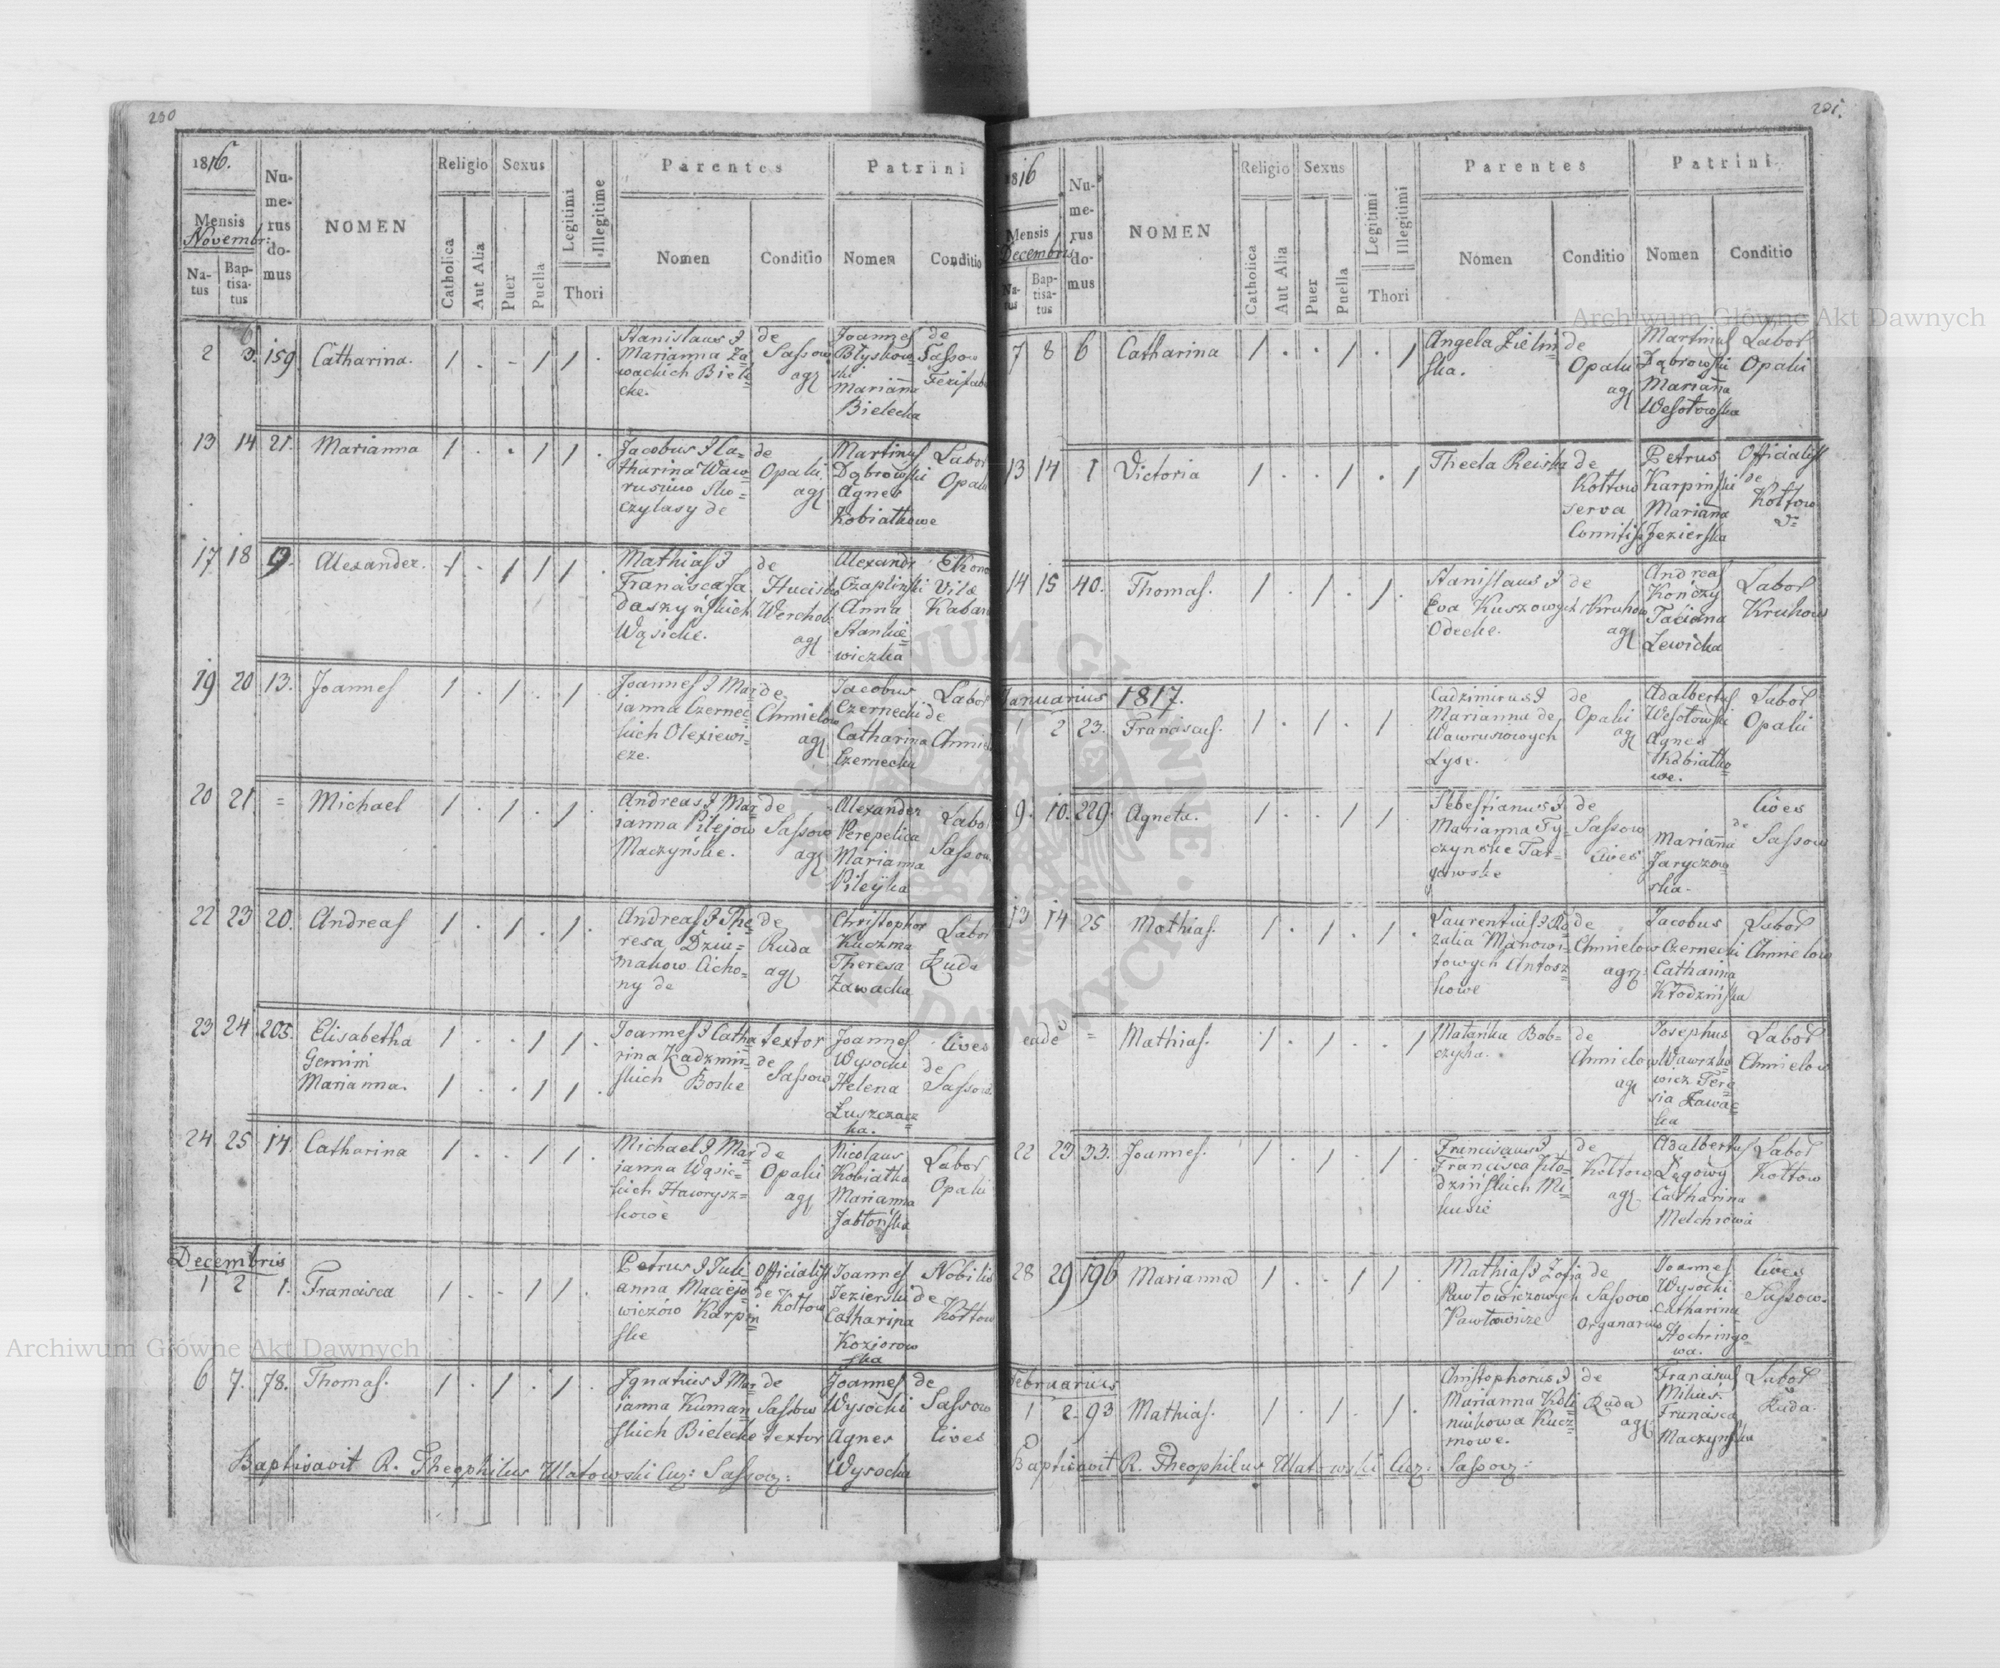 230
1816.
Nu-
me-
rus
do-
mus
NOMEN
Religio
Sexus
Legitimi
Illegitime
Parentes
Patrini
Mensis
Novembr:
Na-
tus
Bap-
tisa-
tus
Catholica
Aut Alia
Puer
Puella
Thori
Nomen
Conditio
Nomen
Conditio
2 159. Catharina.
Stanislaus &
Marianna
de
Sassow
agr
Joannes
Marianna
Bielecka
de
Sassow
13 14 21. Marianna
Jacobus & Ca=
tharina
de
Opaki
agr
Martinus
Dąbrowski
Agnes
Kobiałkowe
Labor
Opaki
17 18 19. Alexander.
Mathias &
Francisca
Wąsicke.
de
Hucisko
Werchob:
agr
Alexandr
Czaplinski
Anna
Stankie=
wiczka
19 20 13. Joannes
Joannes & Mar=
ianna Czernec=
kich Olexiewi=
cze.
de
Chmielow
agr
Jacobus
Czernecki
Catharina
Czernecka
Labor
de
20 21 = Michael
Andreas & Mar=
ianna Pilejow
Maczyńske.
de
Sassow
agr
Alexander
Perepelica
Marianna
Pileyka
Labor
Sassow
22 23 20. Andreas
Andreas & The=
resa
Cicho=
ny de
de
Ruda
agr
Christophor
Kuczma
Theresa
Zawacka
Labor
Ruda
23 24 203. Elisabetha
Gemini
Marianna.
Joannes & Catha=
rina Kadzmir=
skich Boske
textor
de
Sassow
Joannes
Wysocki
Helena
Łuszczacz=
ka.
Cives
de
Sassow
24 25 14. Catharina
Michael & Mar=
ianna Wąsic=
kich Hawrysz=
kowe
de
Opaki
agr
Nicolaus
Kobiałka
Marianna
Jabłońska
Labor
Opaki
Decembris
1 2 1. Francisca
Petrus & Juli=
anna Maciejo=
wiczów Karpin=
ske
Officialist
de
Kołtow
Joannes
Jezierski
Catharina
Koziorow
ska
Nobilis
de
Kołtow
6 7. 78. Thomas.
Ignatius & Mar=
ianna Kuman=
skich Bielecke
de
Sassow
textor
Joannes
Wysocki
Agnes
Wysocka
de
Sassow
Cives
Baptisavit R. Theophilus Ulatowski Cur: Sassow:
231.
1816
Nu-
me-
rus
do-
mus
NOMEN
Religio
Sexus
Legitimi
Illegitimi
Parentes
Patrini
Mensis
Decembris
Na-
tus
Bap-
tisa-
tus
Catholica
Aut Alia
Puer
Puella
Thori
Nomen
Conditio
Nomen
Conditio
7 8 6 Catharina
Angela Zielin=
ska.
de
Opaki
agr
Martinus
Dąbrowski
Marianna
Wesołowska
Labor
Opaki
13 14 1 Victoria
Thecla Reiska
de
Kołtow
serva
Petrus
Karpinski
Marianna
Jezierska
Officialist
de
Kołtow
14 15 40. Thomas.
Stanislaus &
Eva Kuszowych
Odecke.
de
Kruhow
agr
Andreas
Kończy
Taciana
Lewicka
Labor
Kruhow
Januarius 1817.
1 2 23. Franciscus.
Cadzimirus &
Marianna de
Wawrusowych
Lyse.
de
Opaki
agr
Adalbertus
Wesołowski
Agnes
Kobiałko=
we.
Labor
Opaki
9. 10. 229. Agneta.
Sebestianus &
Marianna Ty=
czynske Tar=
gowske
de
Sassow
Cives
Marianna
Jaryczow=
ska.
Cives
de
Sassow
13 14 25 Mathias.
Laurentius & Ro
zalia Manowi=
towych Antosz=
kowe
de
Chmielow
agr:
Jacobus
Czernecki
Catharina
Kłodzińska
Labor
Chmielow
eade = Mathias.
Matanka Bab=
czycha.
de
Chmielow
agr
Josephus
Wawrzko
wicz Tere
sia Zawac=
ka
Labor
Chmielow
22 23 33. Joannes.
Franciscus &
Francisca Kło=
dzińskich Mi=
kusie
de
Kołtow
agr
Adalbertus
Łęgowy
Catharina
Melchrowa
Labor
Kołtow
28 29 196 Marianna
Mathias & Zofia
Pawłowiczowych
Pawłowicze
de
Sassow
Organarius
Joannes
Wysocki
Catharina
Hochringo=
wa.
Cives
Sassow.
Februarius
1 2. 93 Mathias.
Christophorus &
Marianna Kali=
niukowa Kucz=
mowe.
de
Ruda
agr
Franciscus
Mikus.
Francisca
Maczynska
Labor
Ruda.
Baptisavit R. Theophilus Ulatowski Cur: Sassow:
Archiwum Główne Akt Dawnych
Archiwum Główne Akt Dawnych
ARCHIWUM GŁÓWNE · AKT DAWNYCH ·